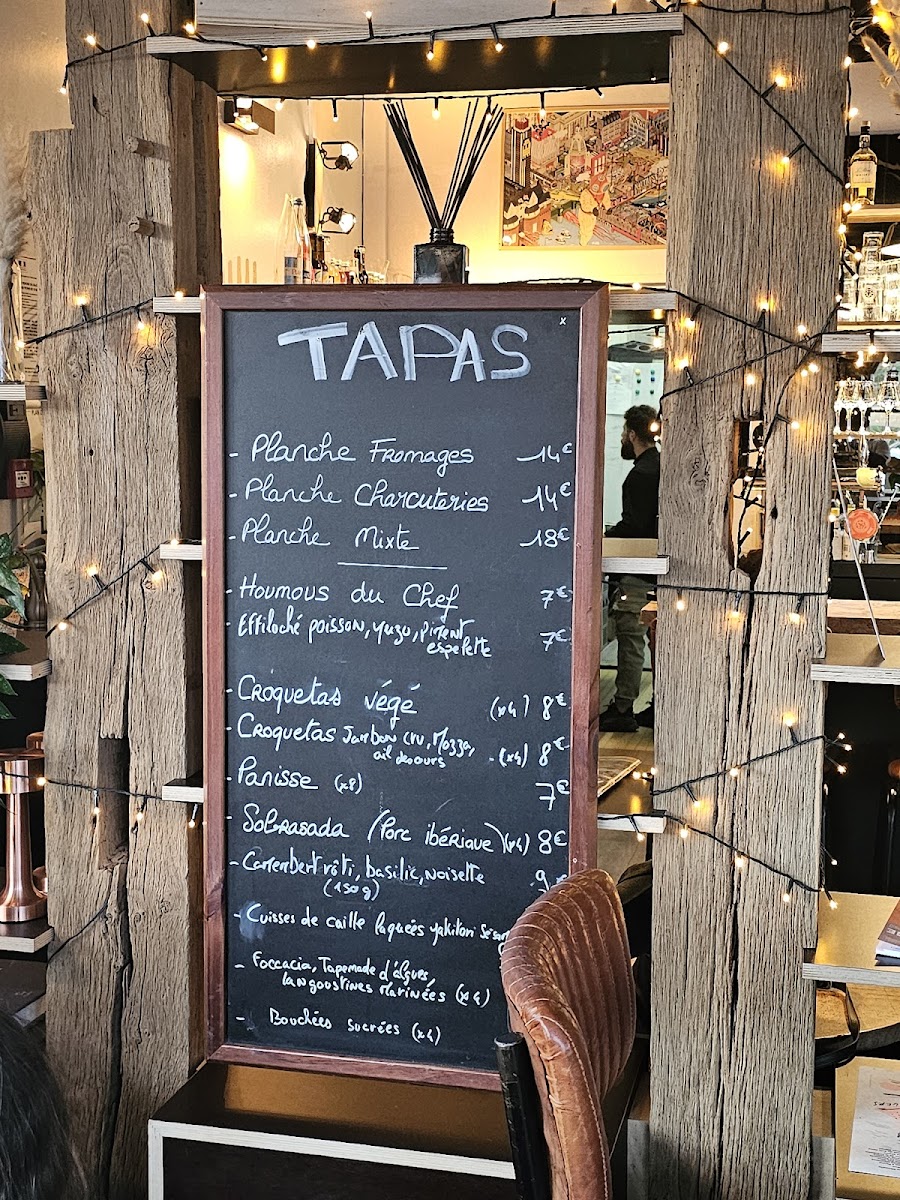 x
TAPAS
- Planche Fromages 14€
- Planche Charcuteries 14€
- Planche Mixte 18€
- Houmous du Chef 7€
- Effiloché poisson, yuzu, piment 7€
espelette
- Croquetas végé (x4) 8€
- Croquetas Jambon cru, Mozza, - (x4) 8€
ail des ours
- Panisse (x8) 7€
- Sobrasada (Porc ibérique) (x4) 8€
- Camembert rôti, basilic, noisette 9€
(150g)
- Cuisses de caille laquées yakitori
- Foccacia, Tapemade d'algues,
langoustines marinées (x4)
- Bouchées sucrées (x4)